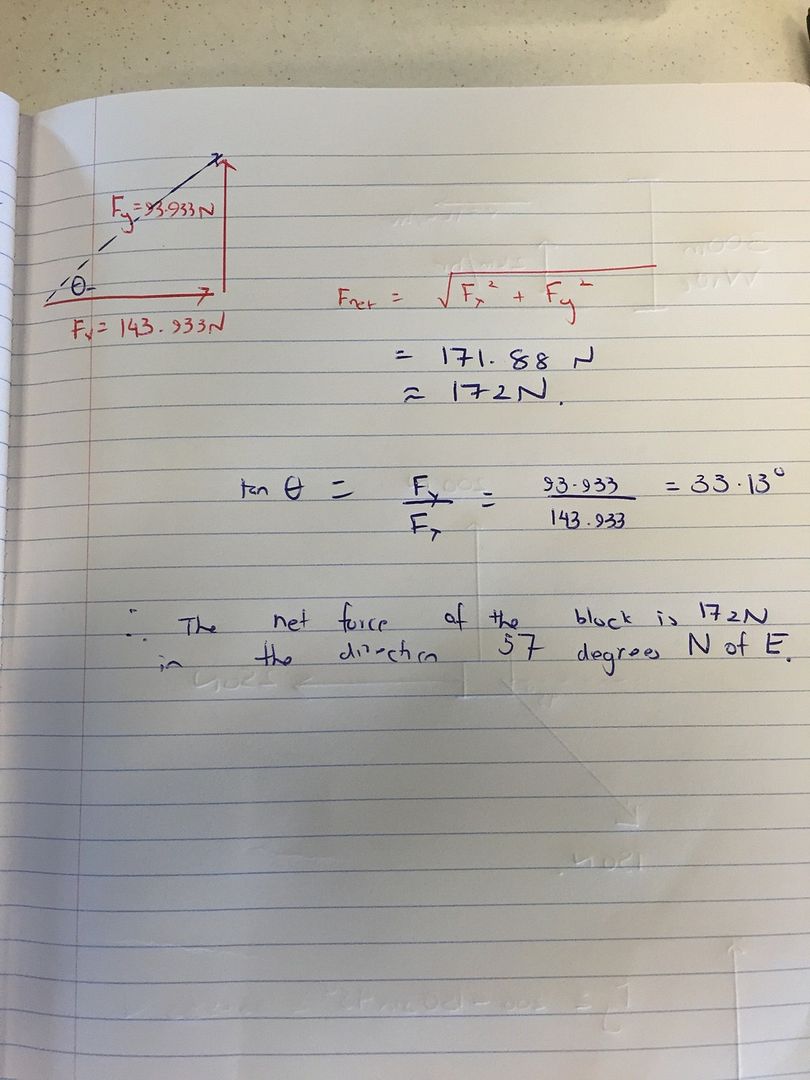 Fy = 93.933N
θ
Fx = 143.933N
Fnet = √Fx² + Fy²
= 171.88 N
≈ 172N.
tan θ = Fy/Fx = 93.933/143.933 = 33.13°
∴ The net force of the block is 172N
in the direction 57 degrees N of E.